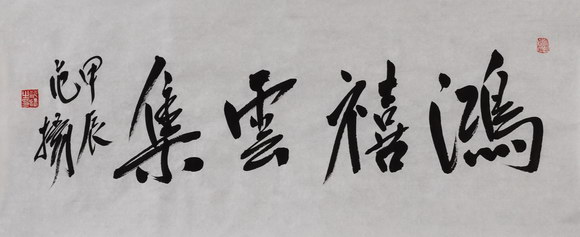 鴻禧雲集
甲辰
范擴